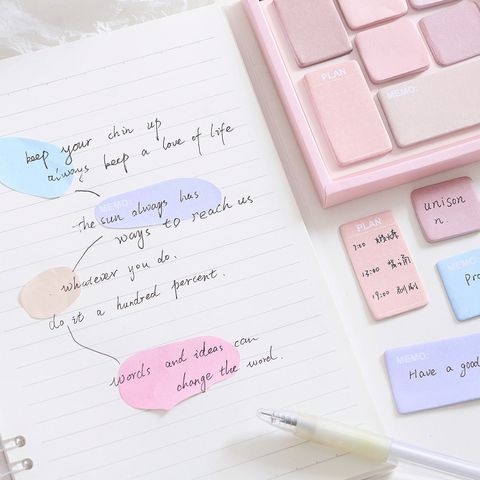 keep your chin up
always keep a love of life
MEMO:
the sun always has
ways to reach us
whatever you do.
do it a hundred percent.
words and ideas can
change the word.
PLAN
MEMO:
unison
n.
PLAN
7:00
13:00
19:00
MEMO:
Pro
MEMO:
Have a good